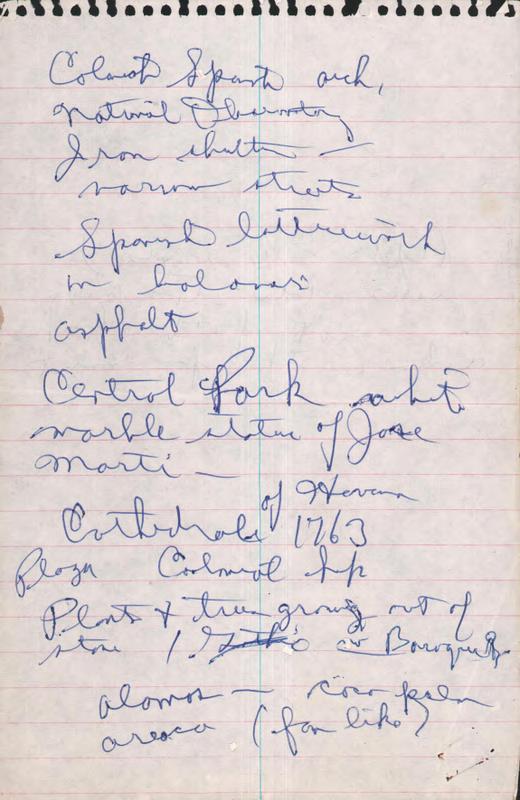 Colonial Spanish arch,
National Observatory
Iron shutters —
narrow streets
Spanish latticework
in balconies
asphalt
Central Park white
marble statue of Jose
Marti —
of Havana
Cathedral 1763
Plaza Colonial hp
Plants & trees growing out of
stone / Baroque
alamos — coco palm
areca (fan like)